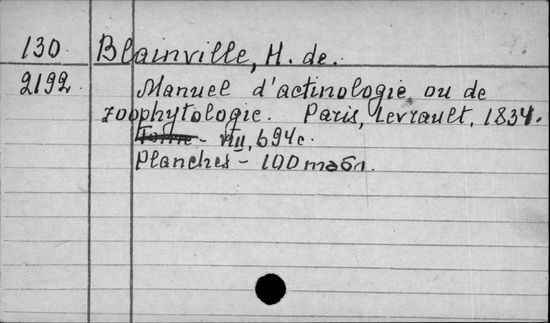 130 Blainville, H. de.
2192 Manuel d'actinologie ou de
zoophytologie. Paris, Levrault, 1834.
Tome - VIII, 694 с.
Planches - 100 табл.